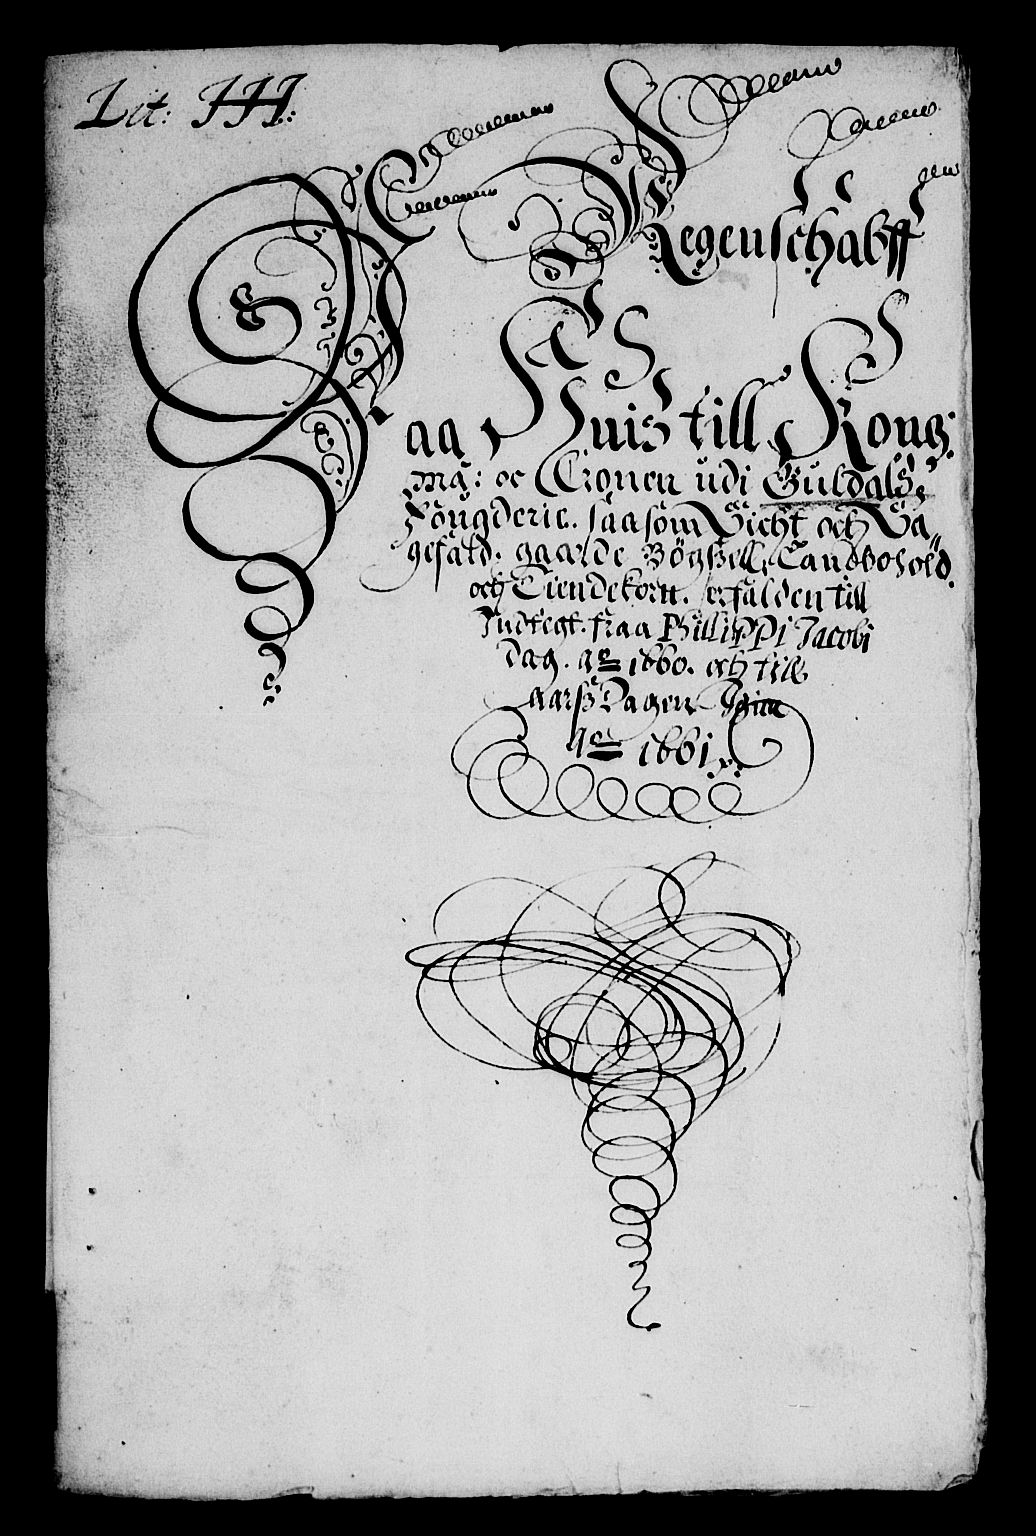 Lit: HH:
Regenschabff
Paa Huis till Kong:
Mä: oc Cronen udi Guldals
Föugderie. saasom Sicht och Sa„
gefald. gaarde Bögszell, Landbohold.
och Tiendekorn. erfalden till
Indtegt. fraa Phillippi Jacobi
Dag. Ao 1660. och till
aarsz Dagen Igien
Ao 1661